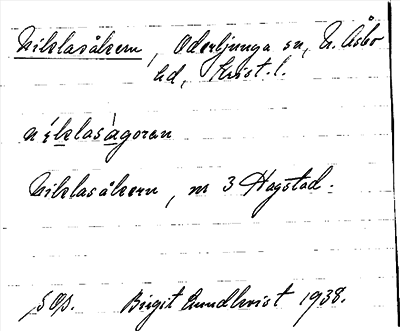 Niklasåkern, Oderljunga sn, N. Åsbo
hd, Krist. l.
níklasàgoren
Niklasåkern, m 3 Hagstad.
s Op. Birgit Lundkvist 1938.